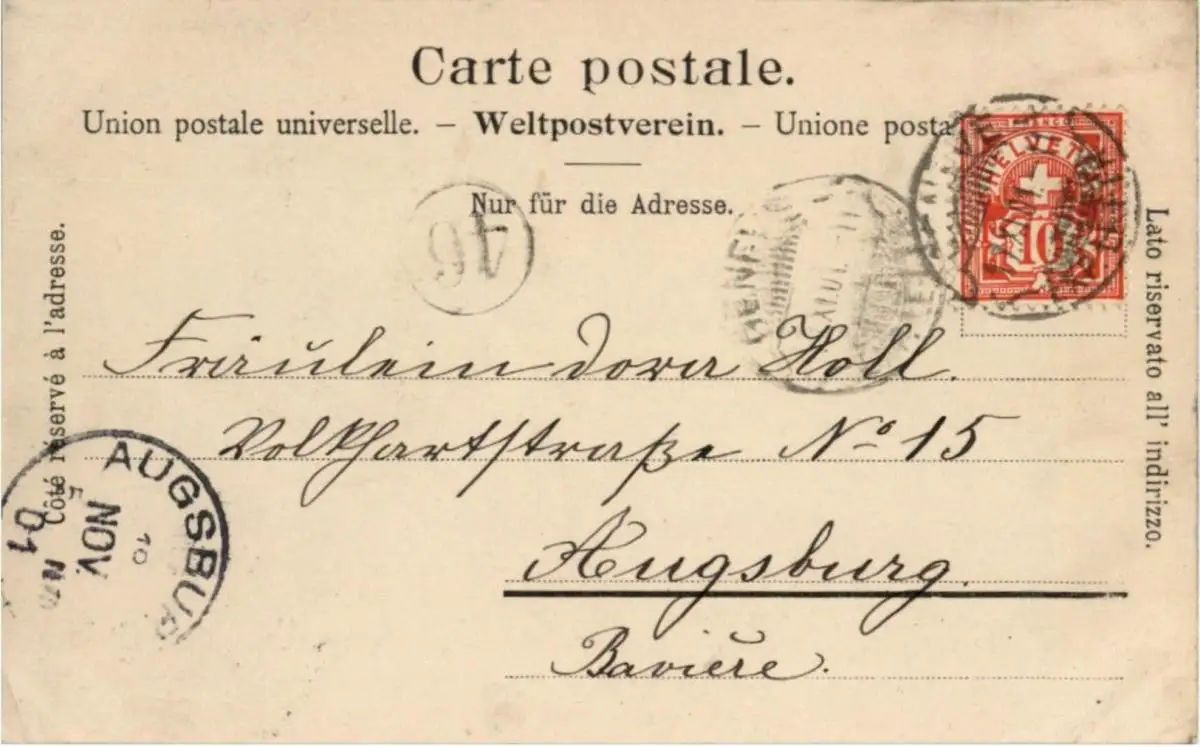 Carte postale.
Union postale universelle. – Weltpostverein. – Unione posta
Nur für die Adresse.
Côté réservé à l'adresse.
Lato riservato all' indirizzo.
FRANCO
HELVETIA
10
46
Fräulein Dora Holl.
Volkhartstraße No 15
Augsburg.
Bavière.
AUGSBUR
10
NOV.
01